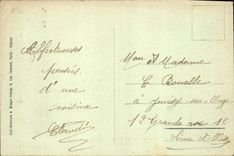 Affectueuses
pensées
d'une
voisine
Claudi
Mon et Madame
C. Bouelle
à Juvisy sur Orge
12 Grande rue 12
Seine et Oise